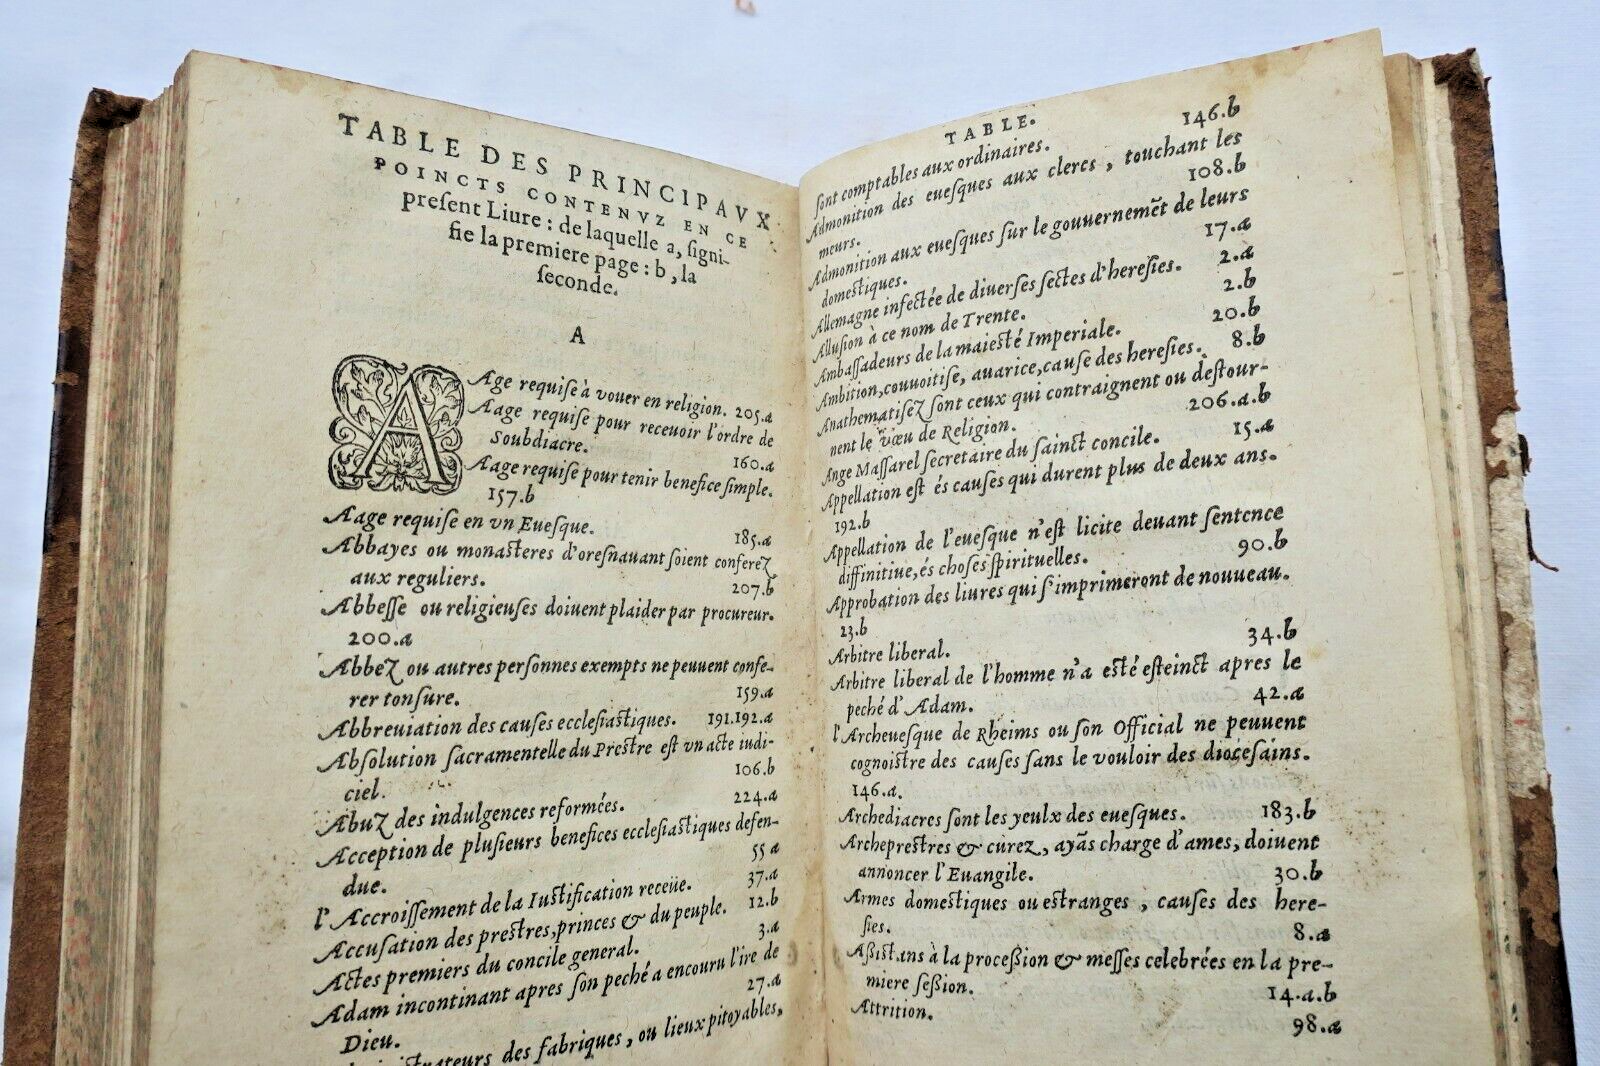 TABLE DES PRINCIPAVX
POINCTS CONTENVZ EN CE
preſent Liure : de laquelle a, ſigni-
fie la premiere page : b, la
ſeconde.
A
Age requiſe à vouer en religion. 205.a
Aage requiſe pour receuoir l'ordre de
Soubdiacre. 160.a
Aage requiſe pour tenir benefice ſimple.
157.b
Aage requiſe en vn Eueſque. 185.a
Abbayes ou monasteres d'oresnauant ſoient conferez
aux reguliers. 207.b
Abbeſſe ou religieuſes doiuent plaider par procureur.
200.a
Abbez ou autres perſonnes exempts ne peuuent confe-
rer tonſure. 159.a
Abbreuiation des cauſes eccleſiastiques. 191.192.a
Abſolution ſacramentelle du Prestre est vn acte iudi-
ciel. 106.b
Abuz des indulgences reformées. 224.a
Acception de pluſieurs benefices eccleſiastiques defen-
due. 55 a
l'Accroiſſement de la Iustification receüe. 37.a
Accuſation des prestres, princes & du peuple. 12.b
Actes premiers du concile general. 3.a
Adam incontinant apres ſon peché a encouru l'ire de
Dieu. 27.a
des fabriques, ou lieux pitoyables,
TABLE.
ſont comptables aux ordinaires. 146.b
Admonition des eueſques aux clercs, touchant les
meurs. 108.b
Admonition aux eueſques ſur le gouuernemẽt de leurs
domestiques. 17.a
Allemagne infectée de diuerſes ſectes d'hereſies. 2.a
Alluſion à ce nom de Trente. 2.b
Ambaſſadeurs de la maiesté Imperiale. 20.b
Ambition, conuoitiſe, auarice, cauſe des hereſies. 8.b
Anathematiſez ſont ceux qui contraignent ou destour-
nent le vœu de Religion. 206.a.b
Ange Maſſarel ſecretaire du ſainct concile. 15.a
Appellation est és cauſes qui durent plus de deux ans.
192.b
Appellation de l'eueſque n'est licite deuant ſentence
diffinitiue, és choſes ſpirituelles. 90.b
Approbation des liures qui s'imprimeront de nouueau.
23.b
Arbitre liberal. 34.b
Arbitre liberal de l'homme n'a esté esteinct apres le
peché d'Adam. 42.a
l'Archeueſque de Rheims ou ſon Official ne peuuent
cognoistre des cauſes ſans le vouloir des dioceſains.
146.a.
Archediacres ſont les yeulx des eueſques. 183.b
Archeprestres & curez, ayãs charge d'ames, doiuent
annoncer l'Euangile. 30.b
Armes domestiques ou estranges, cauſes des here-
ſies. 8.a
Aßistans à la proceßion & meſſes celebrées en la pre-
miere ſeßion. 14.a.b
Attrition. 98.a